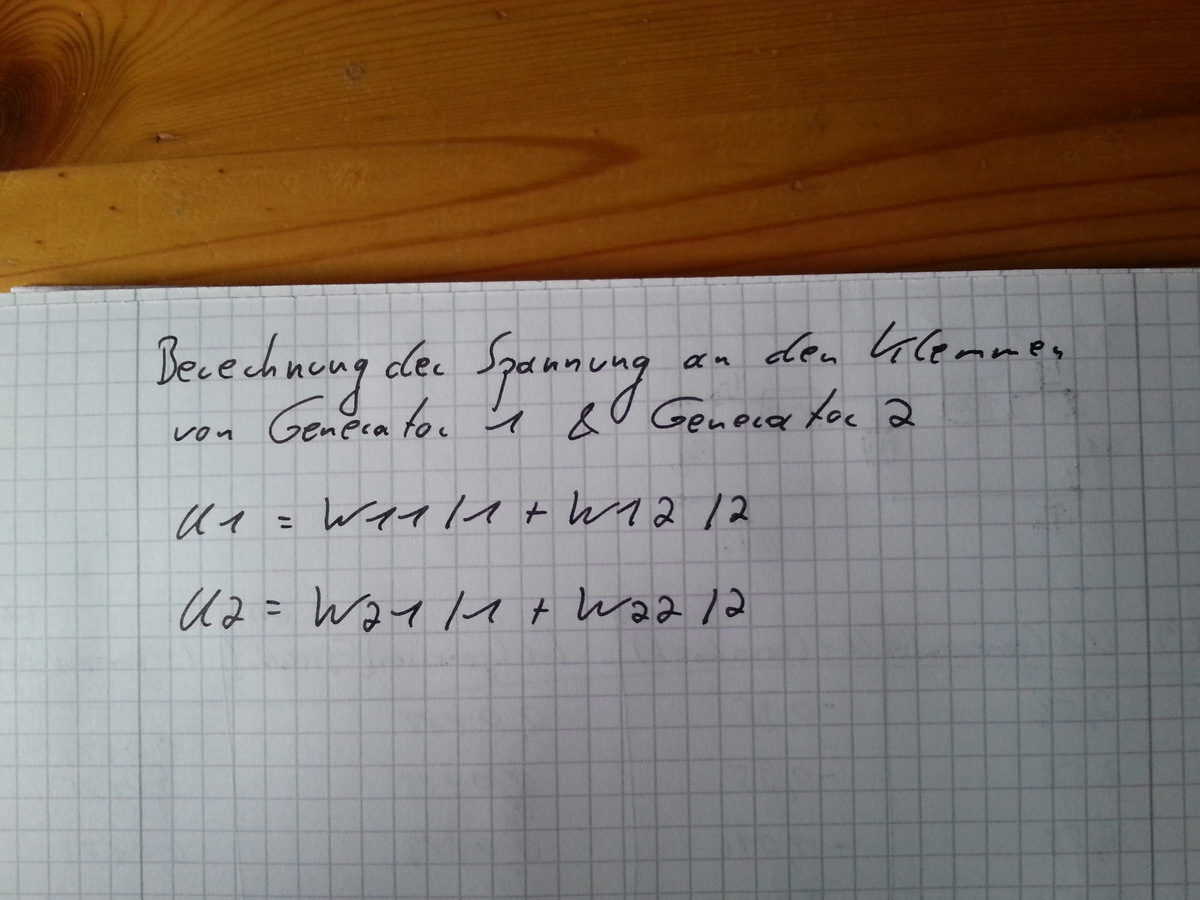 Berechnung der Spannung an den Klemmen
von Generator 1 & Generator 2
U1 = W11 I1 + W12 I2
U2 = W21 I1 + W22 I2